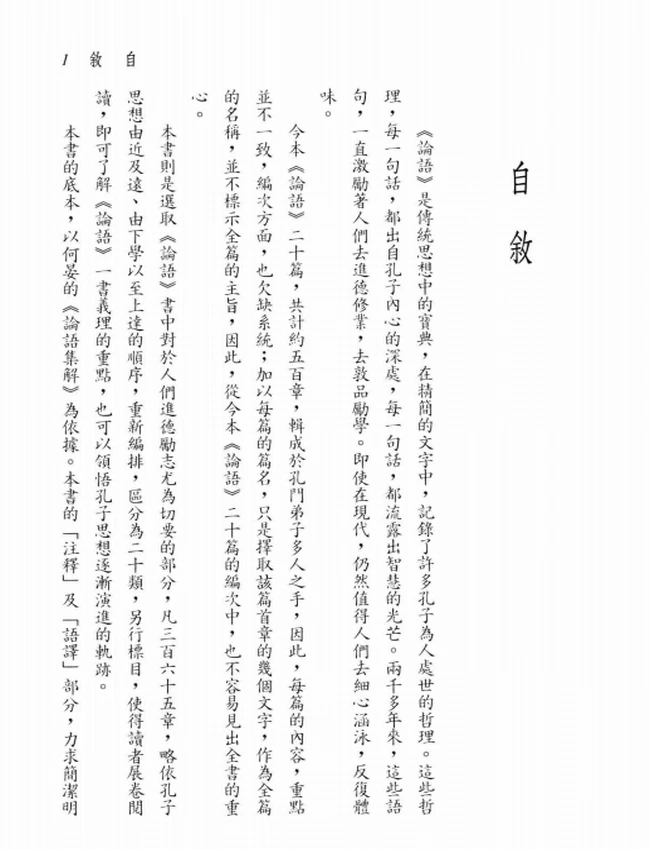 自敘 1
自敘
《論語》是傳統思想中的寶典，在精簡的文字中，記錄了許多孔子為人處世的哲理。這些哲
理，每一句話，都出自孔子內心的深處，每一句話，都流露出智慧的光芒。兩千多年來，這些語
句，一直激勵著人們去進德修業，去敦品勵學。即使在現代，仍然值得人們去細心涵泳，反復體
味。
今本《論語》二十篇，共計約五百章，輯成於孔門弟子多人之手，因此，每篇的內容，重點
並不一致，編次方面，也欠缺系統；加以每篇的篇名，只是擇取該篇首章的幾個文字，作為全篇
的名稱，並不標示全篇的主旨，因此，從今本《論語》二十篇的編次中，也不容易見出全書的重
心。
本書則是選取《論語》書中對於人們進德勵志尤為切要的部分，凡三百六十五章，略依孔子
思想由近及遠、由下學以至上達的順序，重新編排，區分為二十類，另行標目，使得讀者展卷閱
讀，即可了解《論語》一書義理的重點，也可以領悟孔子思想逐漸演進的軌跡。
本書的底本，以何晏的《論語集解》為依據。本書的「注釋」及「語譯」部分，力求簡潔明